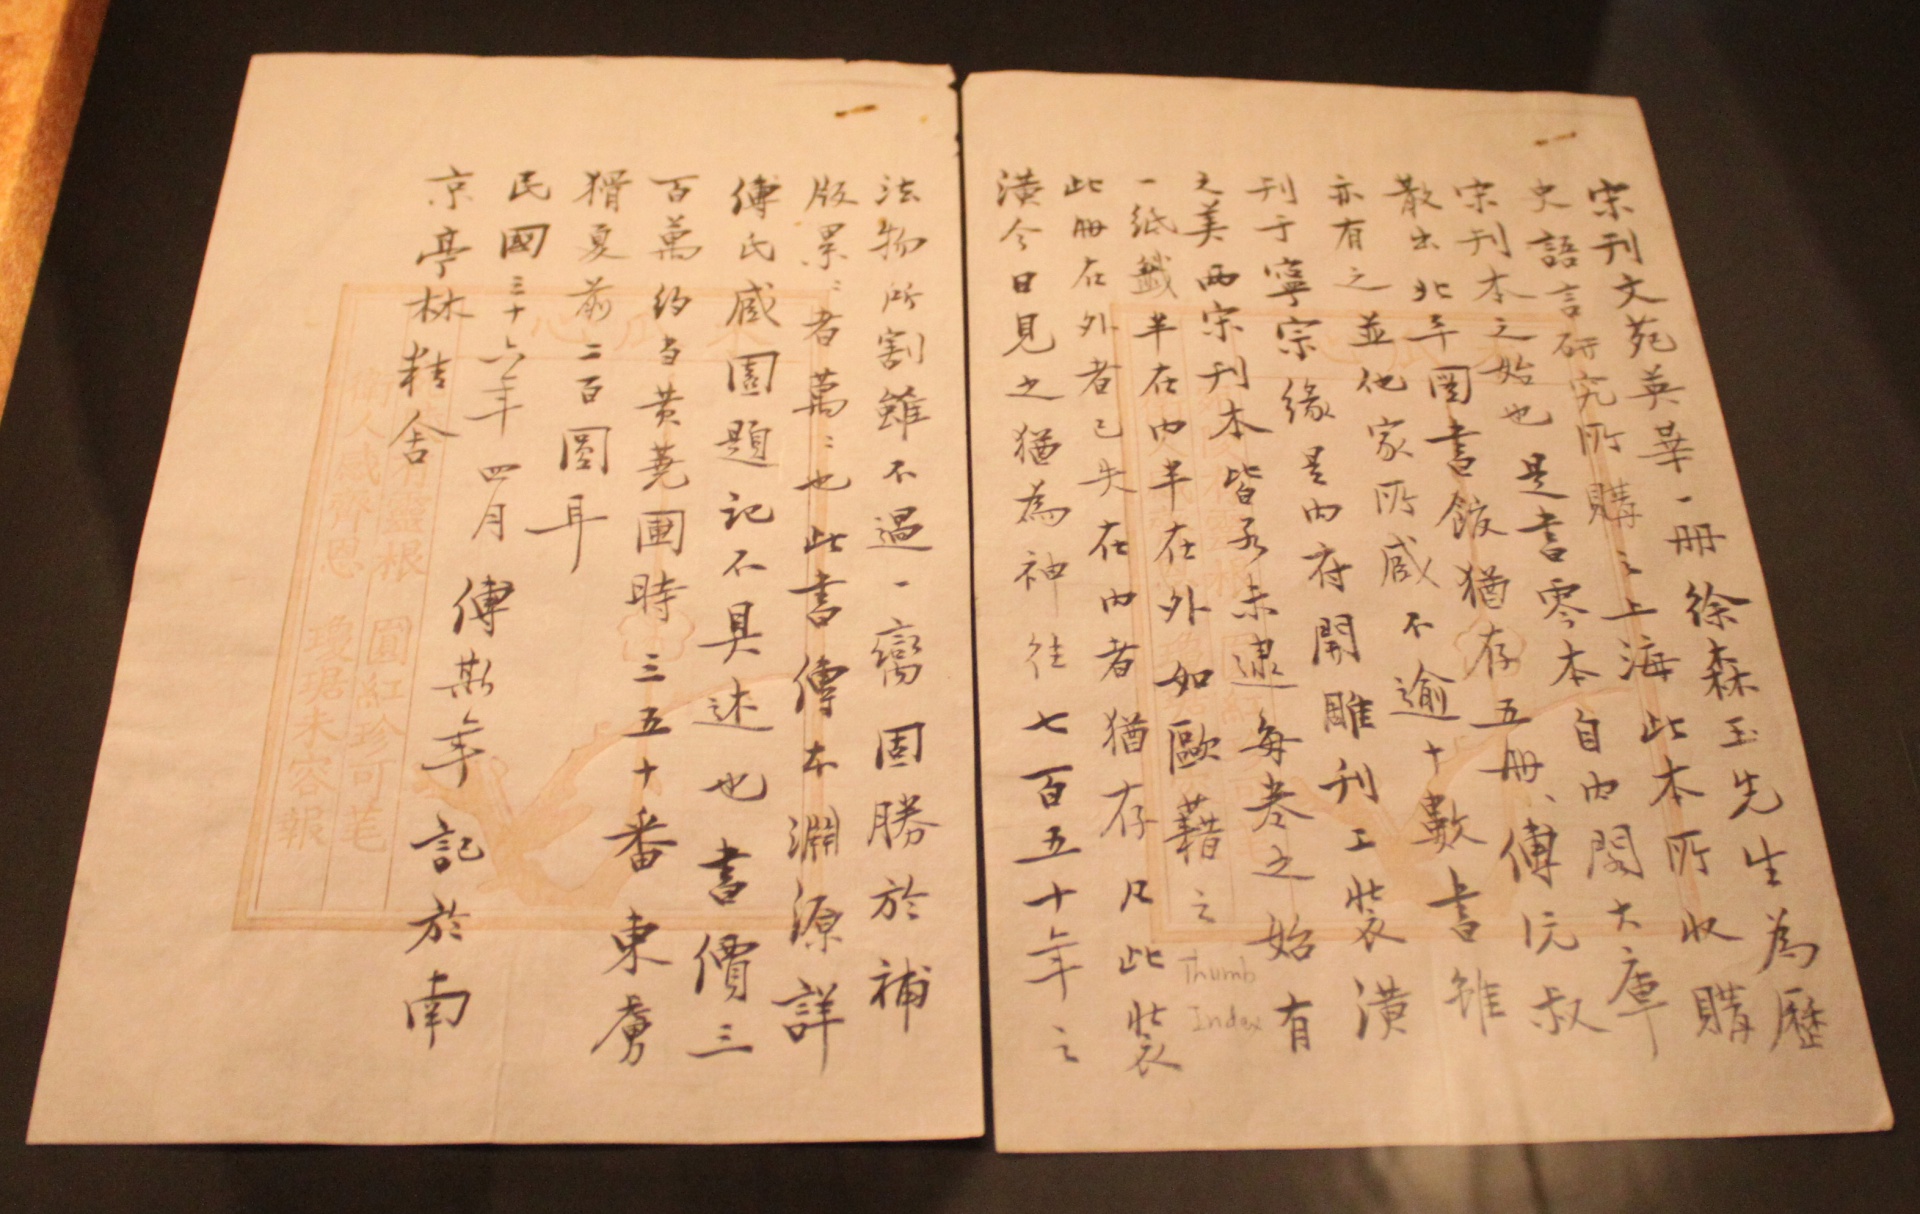 宋刊文苑英華一冊徐森玉先生為歷
史語言研究所購之上海此本所收購
宋刊本之始也是書零本自內閣大庫
散出北平圖書館猶存五冊、傅沅叔
亦有之並他家所藏不逾十數書雖
刊于寧宗緣是內府開雕刊工裝潢
之美兩宋刊本皆承未逮每卷之始有
一紙籤半在內半在外如歐藉之
Thumb
Index
此冊在外者已失在內者猶存只此裝
潢今日見之猶為神往七百五十年之
法物所割雖不過一臠固勝於補
版累〻者萬〻也此書傳本淵源詳
傅氏藏園題記不具述也書價三
百萬約當黃蕘圃時三五十番東虜
猾夏前二百圓耳
民國三十六年四月傅斯年記於南
京亭林精舍
靈根
圓紅珍可芼
衛人感齊恩
瓊琚未容報